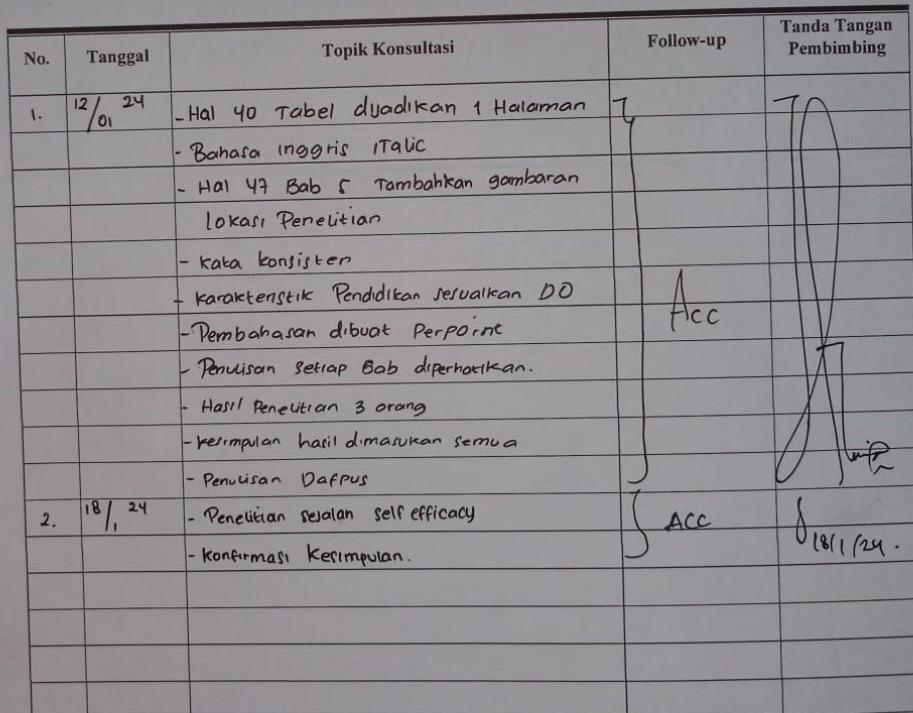 No. Tanggal Topik Konsultasi Follow-up Tanda Tangan Pembimbing
1. 12/01 24 - Hal 40 Tabel dijadikan 1 Halaman
- Bahasa inggris ITalic
- Hal 47 Bab 5 Tambahkan gambaran
lokasi Penelitian
- kata konsisten
- karakteristik Pendidikan sesuaikan DO
Acc
- Pembahasan dibuat Perpoint
- Penulisan setiap Bab diperhatikan.
- Hasil Penelitian 3 orang
- kesimpulan hasil dimasukan semua
- Penulisan Dafpus
2. 18/1 24 - Penelitian sejalan self efficacy ACC
- konfirmasi kesimpulan. 18/1/24.